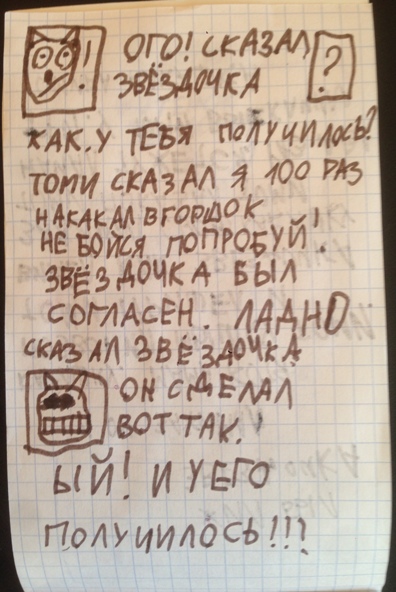 ! ОГО! СКАЗАЛ ?
ЗВЁЗДОЧКА
КАК. У ТЕБЯ ПОЛУЧИЛОСЬ?
ТОМИ СКАЗАЛ Я 100 РАЗ
НАКАКАЛ ВГОРШОК
НЕ БОЙСЯ ПОПРОБУЙ!
ЗВЁЗДОЧКА БЫЛ
СОГЛАСЕН. ЛАДНО
СКАЗАЛ ЗВЁЗДОЧКА
ОН СДЕЛАЛ
ВОТ ТАК.
ЫЙ! И УЕГО
ПОЛУЧИЛОСЬ!!!